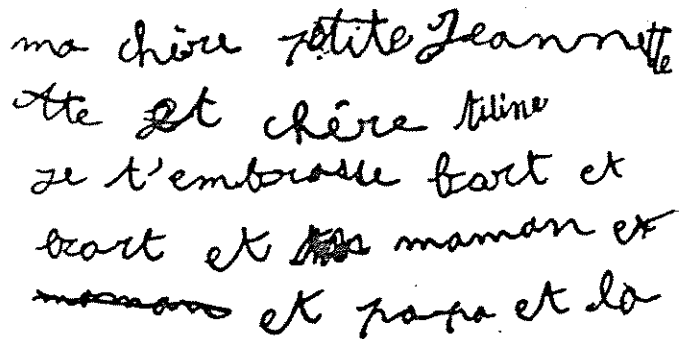 ma chère petite Jeannette
tte et chère titine
je t'embrasse bart et
bart et maman et
maman et papa et la